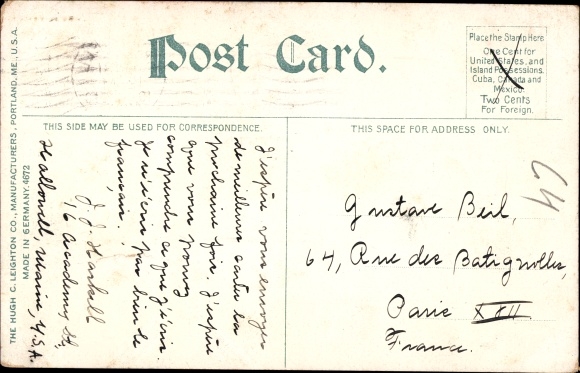 Post Card.
Place the Stamp Here
One Cent for
United States, and
Island Possessions,
Cuba, Canada and
Mexico.
Two Cents
For Foreign.
THIS SIDE MAY BE USED FOR CORRESPONDENCE.
THIS SPACE FOR ADDRESS ONLY.
THE HUGH C. LEIGHTON CO., MANUFACTURERS, PORTLAND, ME., U.S.A.
MADE IN GERMANY. 4672
J'espère vous envoyer
de meilleures cartes la
prochaine fois. J'espère
que vous pouvez
comprendre ce que j'écris.
Je n'écris pas bien le
français.
J. J. Haskell
16 Academy St.
Hallowell, Maine, U.S.A.
64
Gustave Beil,
64, Rue des Batignolles,
Paris XVII
France.